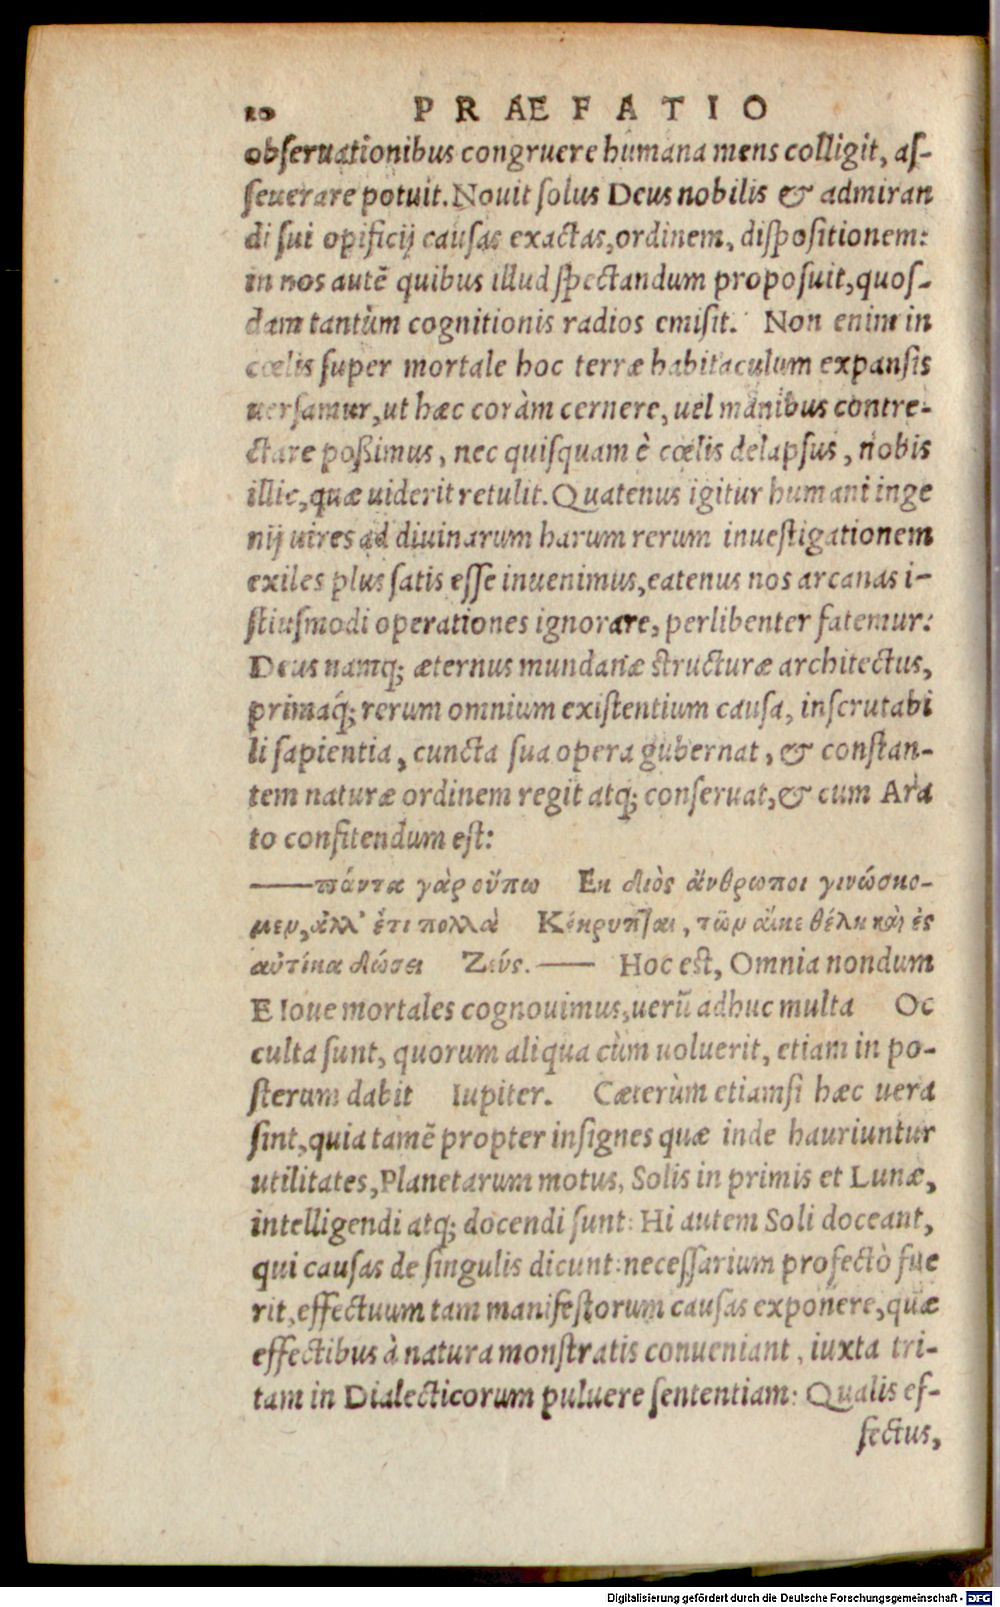 20 PRAEFATIO
obseruationibus congruere humana mens colligit, as-
seuerare potuit. Nouit solus Deus nobilis & admiran
di sui opificij causas exactas, ordinem, dispositionem:
in nos autē quibus illud spectandum proposuit, quos-
dam tantùm cognitionis radios emisit. Non enim in
cœlis super mortale hoc terræ habitaculum expansis
uersamur, ut hæc coràm cernere, uel manibus contre-
ctare poßimus, nec quisquam è cœlis delapsus, nobis
illic, quæ uiderit retulit. Quatenus igitur humani inge
nij uires ad diuinarum harum rerum inuestigationem
exiles plus satis esse inuenimus, eatenus nos arcanas i-
stiusmodi operationes ignorare, perlibenter fatemur:
Deus namq; æternus mundanæ structuræ architectus,
primaq́; rerum omnium existentium causa, inscrutabi
li sapientia, cuncta sua opera gubernat, & constan-
tem naturæ ordinem regit atq; conseruat, & cum Ara
to confitendum est:
——πάντα γὰρ οὔπω Εκ διὸς ἄνθρωποι γινώσκο-
μεν, ἀλλ' ἔτι πολλὰ Κέκρυπται, τῶν αἴκε θέλῃ καὶ ἐς
αὐτίκα δώσει Ζεύς.—— Hoc est, Omnia nondum
E Ioue mortales cognouimus, uerū adhuc multa Oc
culta sunt, quorum aliqua cùm uoluerit, etiam in po-
sterum dabit Iupiter. Cæterùm etiamsi hæc uera
sint, quia tamē propter insignes quæ inde hauriuntur
utilitates, Planetarum motus, Solis in primis et Lunæ,
intelligendi atq; docendi sunt: Hi autem Soli doceant,
qui causas de singulis dicunt: necessarium profectò fue
rit, effectuum tam manifestorum causas exponere, quæ
effectibus à natura monstratis conueniant, iuxta tri-
tam in Dialecticorum puluere sententiam: Qualis ef-
fectus,
Digitalisierung gefördert durch die Deutsche Forschungsgemeinschaft - DFG